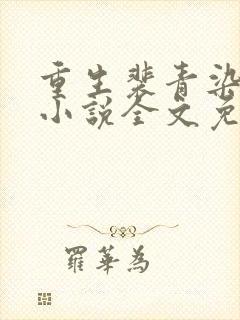 重生裴青染
小说全文免
羅華為